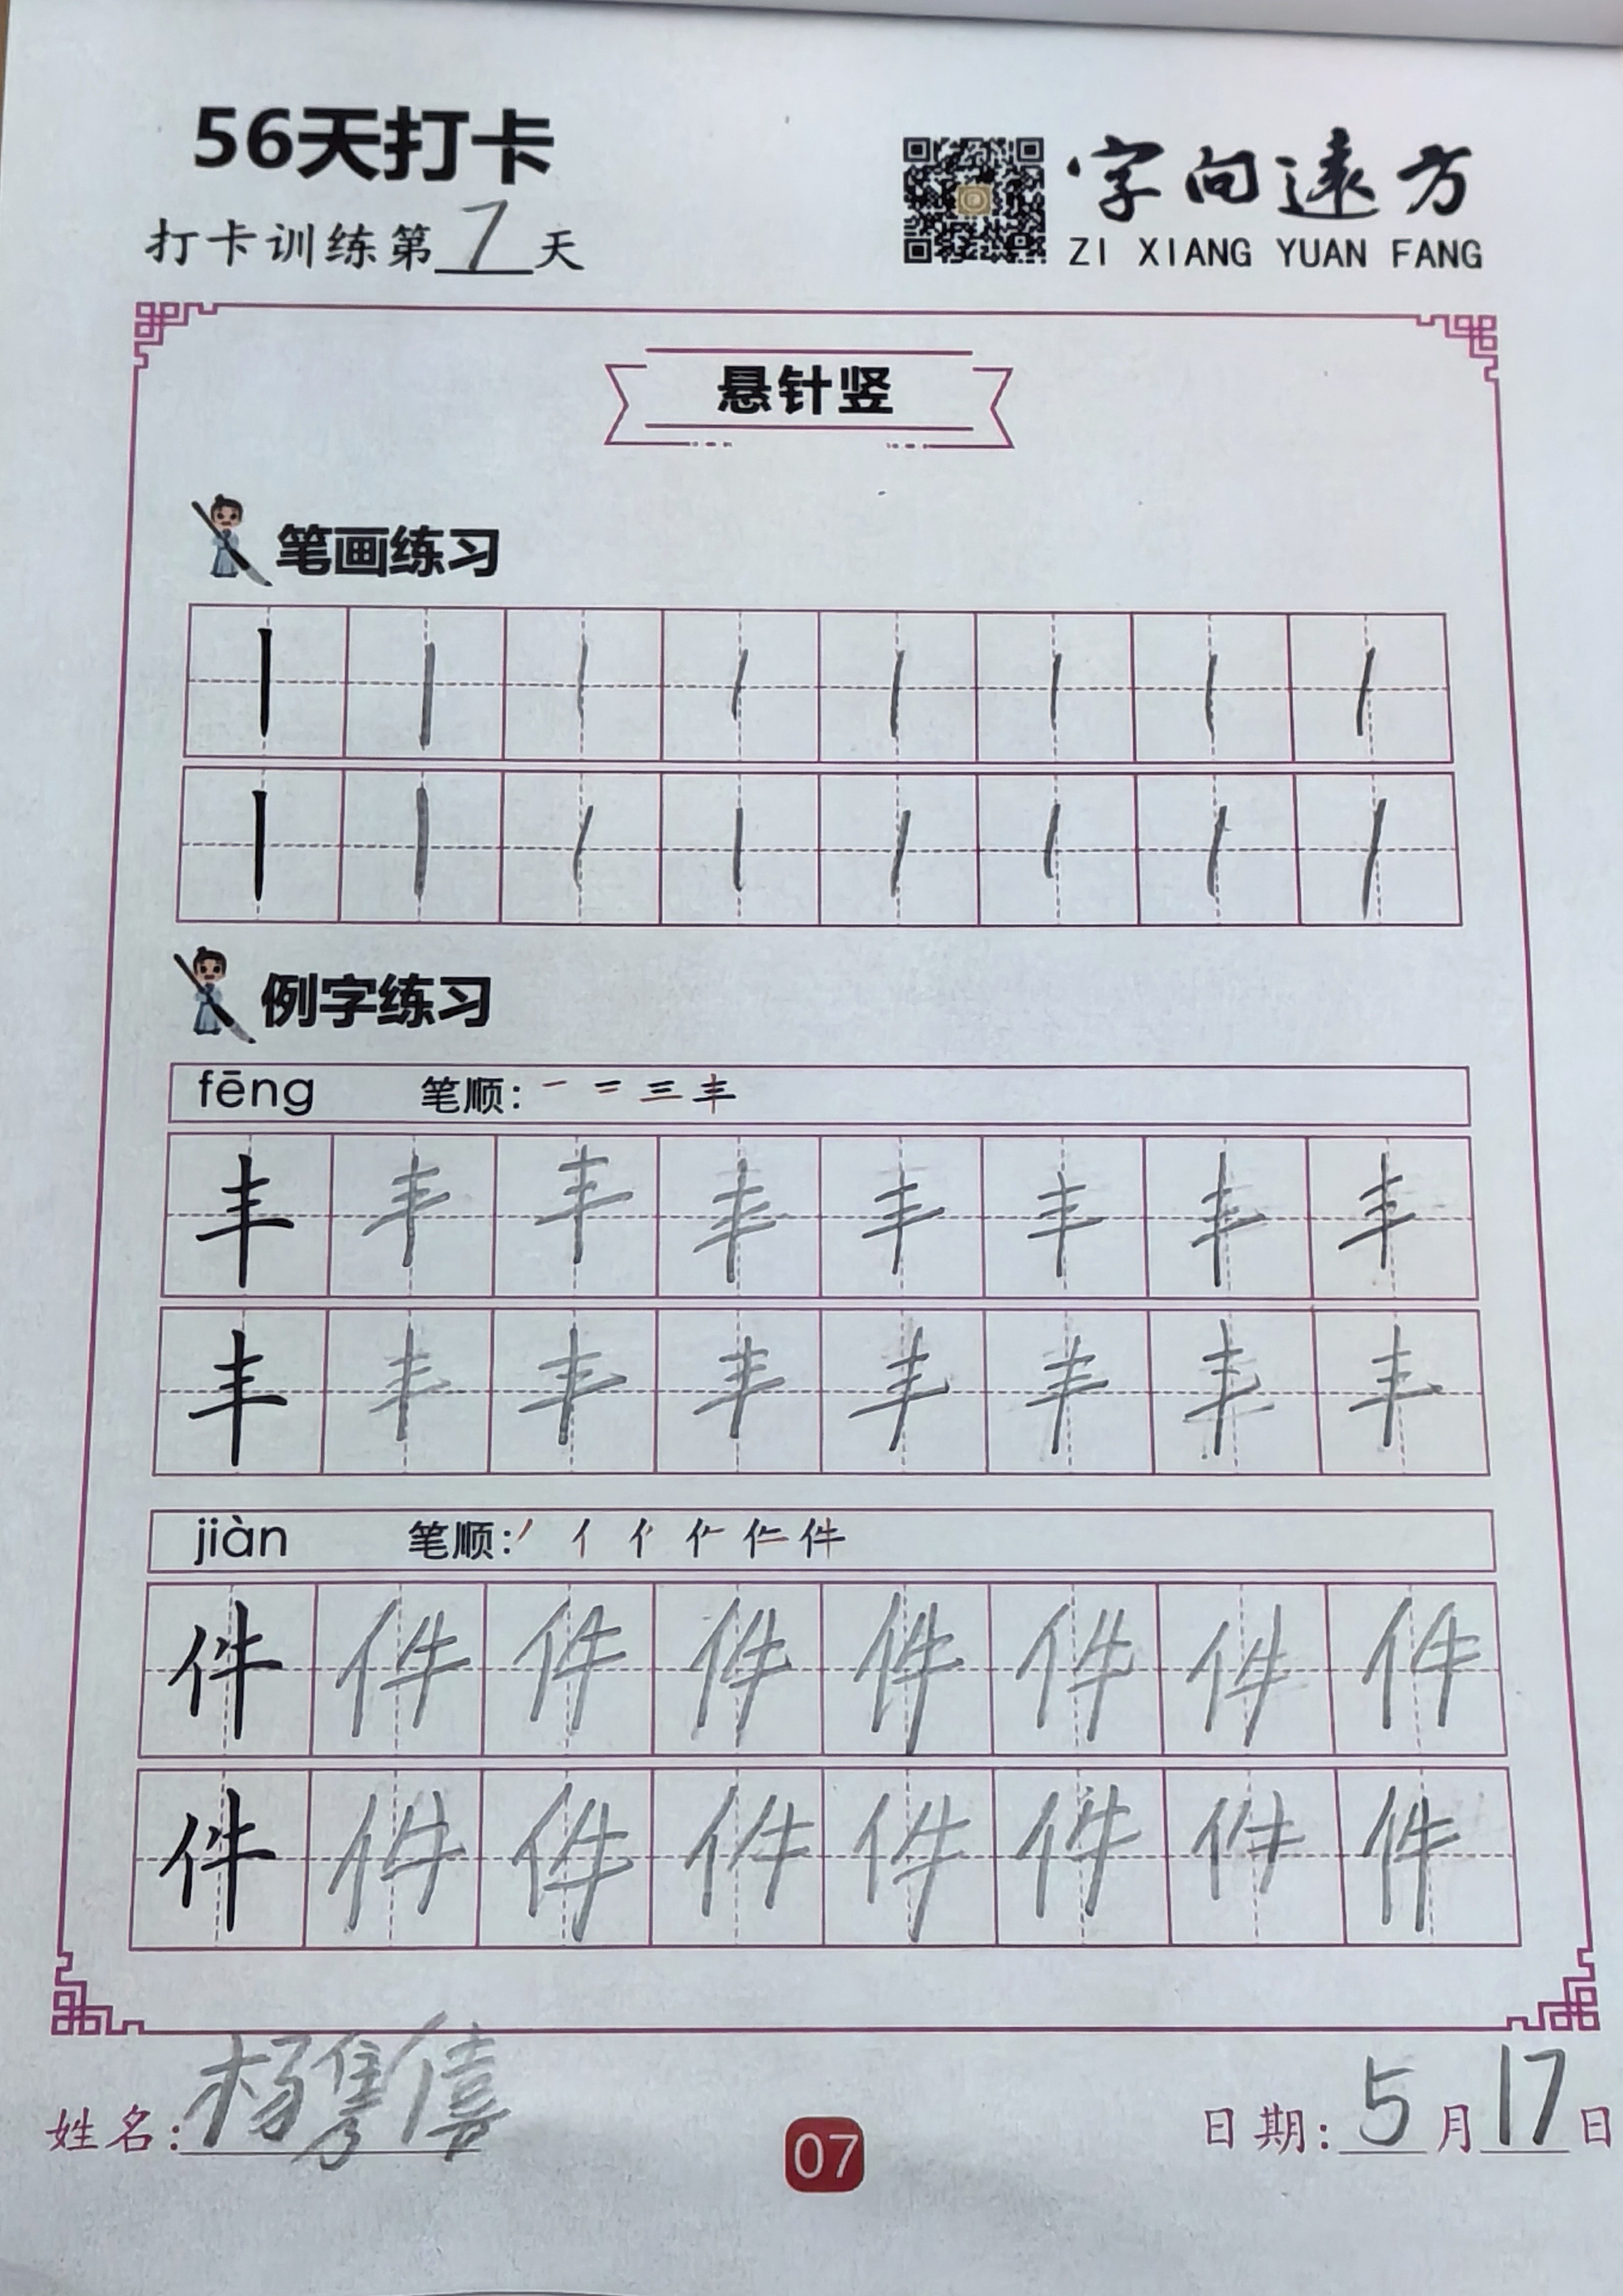 56天打卡
打卡训练第7天
字向遠方
ZI XIANG YUAN FANG
悬针竖
笔画练习
丨丨丨丨丨丨丨丨
丨丨丨丨丨丨丨丨
例字练习
fēng 笔顺: 一 二 三 丰
丰丰丰丰丰丰丰丰
丰丰丰丰丰丰丰丰
jiàn 笔顺: 丿 亻 件
件件件件件件件件
件件件件件件件件
姓名:杨隽僖
07
日期:5月17日